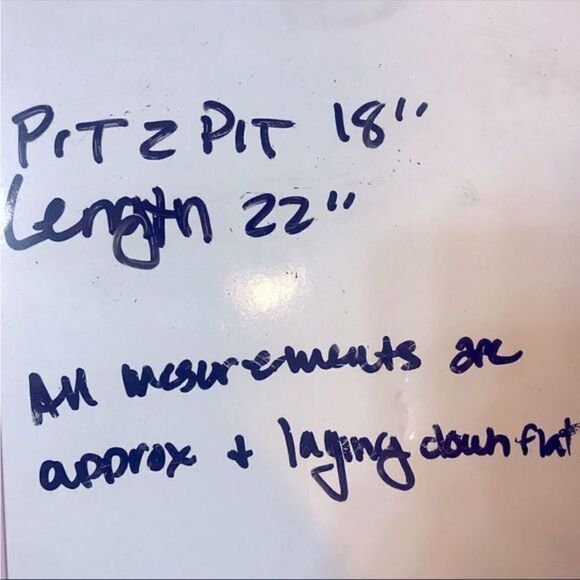 PIT 2 PIT 18"
Length 22"
All mesurements are
approx + laying down flat